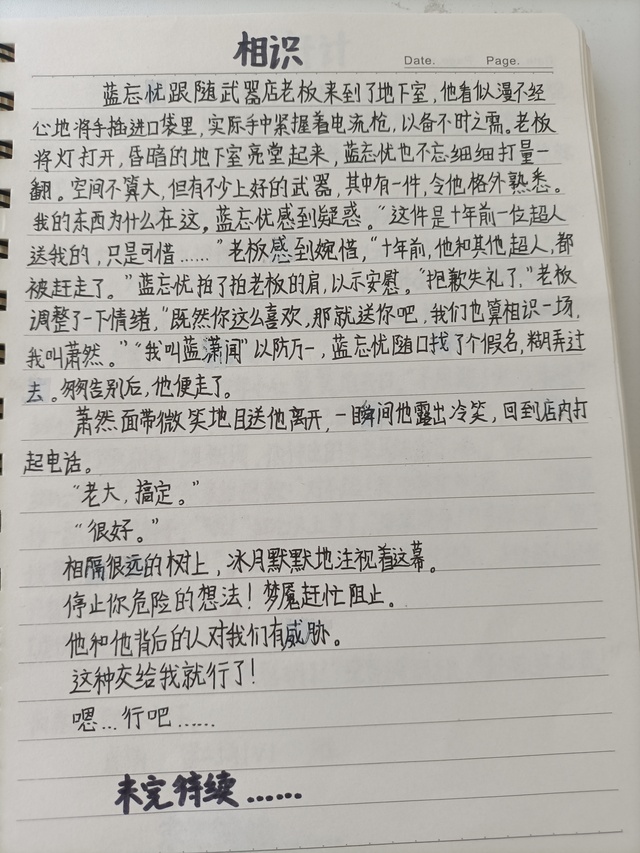 相识
Date. Page.
蓝忘忧跟随武器店老板来到了地下室，他看似漫不经
心地将手插进口袋里，实际手中紧握着电流枪，以备不时之需。老板
将灯打开，昏暗的地下室亮堂起来，蓝忘忧也不忘细细打量一
翻。空间不算大，但有不少上好的武器，其中有一件，令他格外熟悉。
我的东西为什么在这。蓝忘忧感到疑惑。“这件是十年前一位超人
送我的，只是可惜……”老板感到婉惜，“十年前，他和其他超人，都
被赶走了。”蓝忘忧拍了拍老板的肩，以示安慰。“抱歉失礼了，”老板
调整了一下情绪，“既然你这么喜欢，那就送你吧，我们也算相识一场，
我叫萧然。”“我叫蓝潇闻”以防万一，蓝忘忧随口找了个假名，糊弄过
去。匆匆告别后，他便走了。
萧然面带微笑地目送他离开，一瞬间他露出冷笑，回到店内打
起电话。
“老大，搞定。”
“很好。”
相隔很远的树上，冰月默默地注视着这幕。
停止你危险的想法！梦魇赶忙阻止。
他和他背后的人对我们有威胁。
这种交给我就行了！
嗯…行吧……
未完待续……